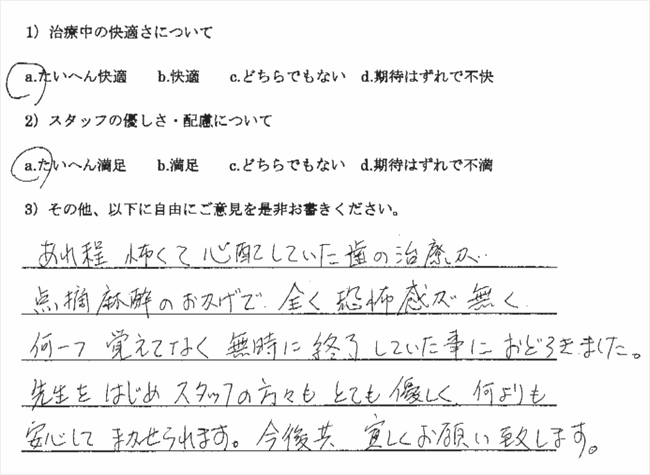 1）治療中の快適さについて
a.たいへん快適　b.快適　c.どちらでもない　d.期待はずれで不快
2）スタッフの優しさ・配慮について
a.たいへん満足　b.満足　c.どちらでもない　d.期待はずれで不満
3）その他、以下に自由にご意見を是非お書きください。
あれ程 怖くて心配していた歯の治療が
点摘麻酔のおかげで、全く恐怖感が無く
何一つ覚えてなく無時に終了していた事におどろきました。
先生をはじめスタッフの方々もとても優しく、何よりも
安心してまかせられます。今後共 宜しくお願い致します。